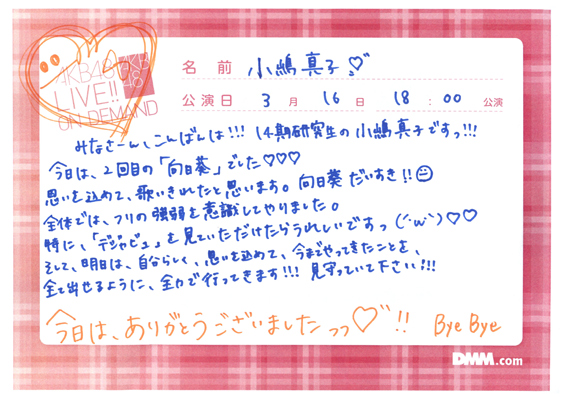 AKB48
LIVE!!
ON DEMAND
AKB
48
名 前 小嶋真子♡
公演日 3 月 16 日 18 : 00 公演
みなさーん、こんばんは!!! 14期研究生の小嶋真子ですっ!!!
今日は、2回目の「向日葵」でした♡♡♡
思いを込めて、歌いきれたと思います。向日葵だいすき!!☺
全体では、フリの強弱を意識してやりました。
特に、「デジャビュ」を見ていただけたらうれしいですっ(´ω`)♡♡
そして、明日は、自分らしく、思いを込めて、今までやってきたことを、
全て出せるように、全力で行ってきます!!! 見守っていて下さい!!!
今日は、ありがとうございましたっっ♡!! Bye Bye
DMM.com